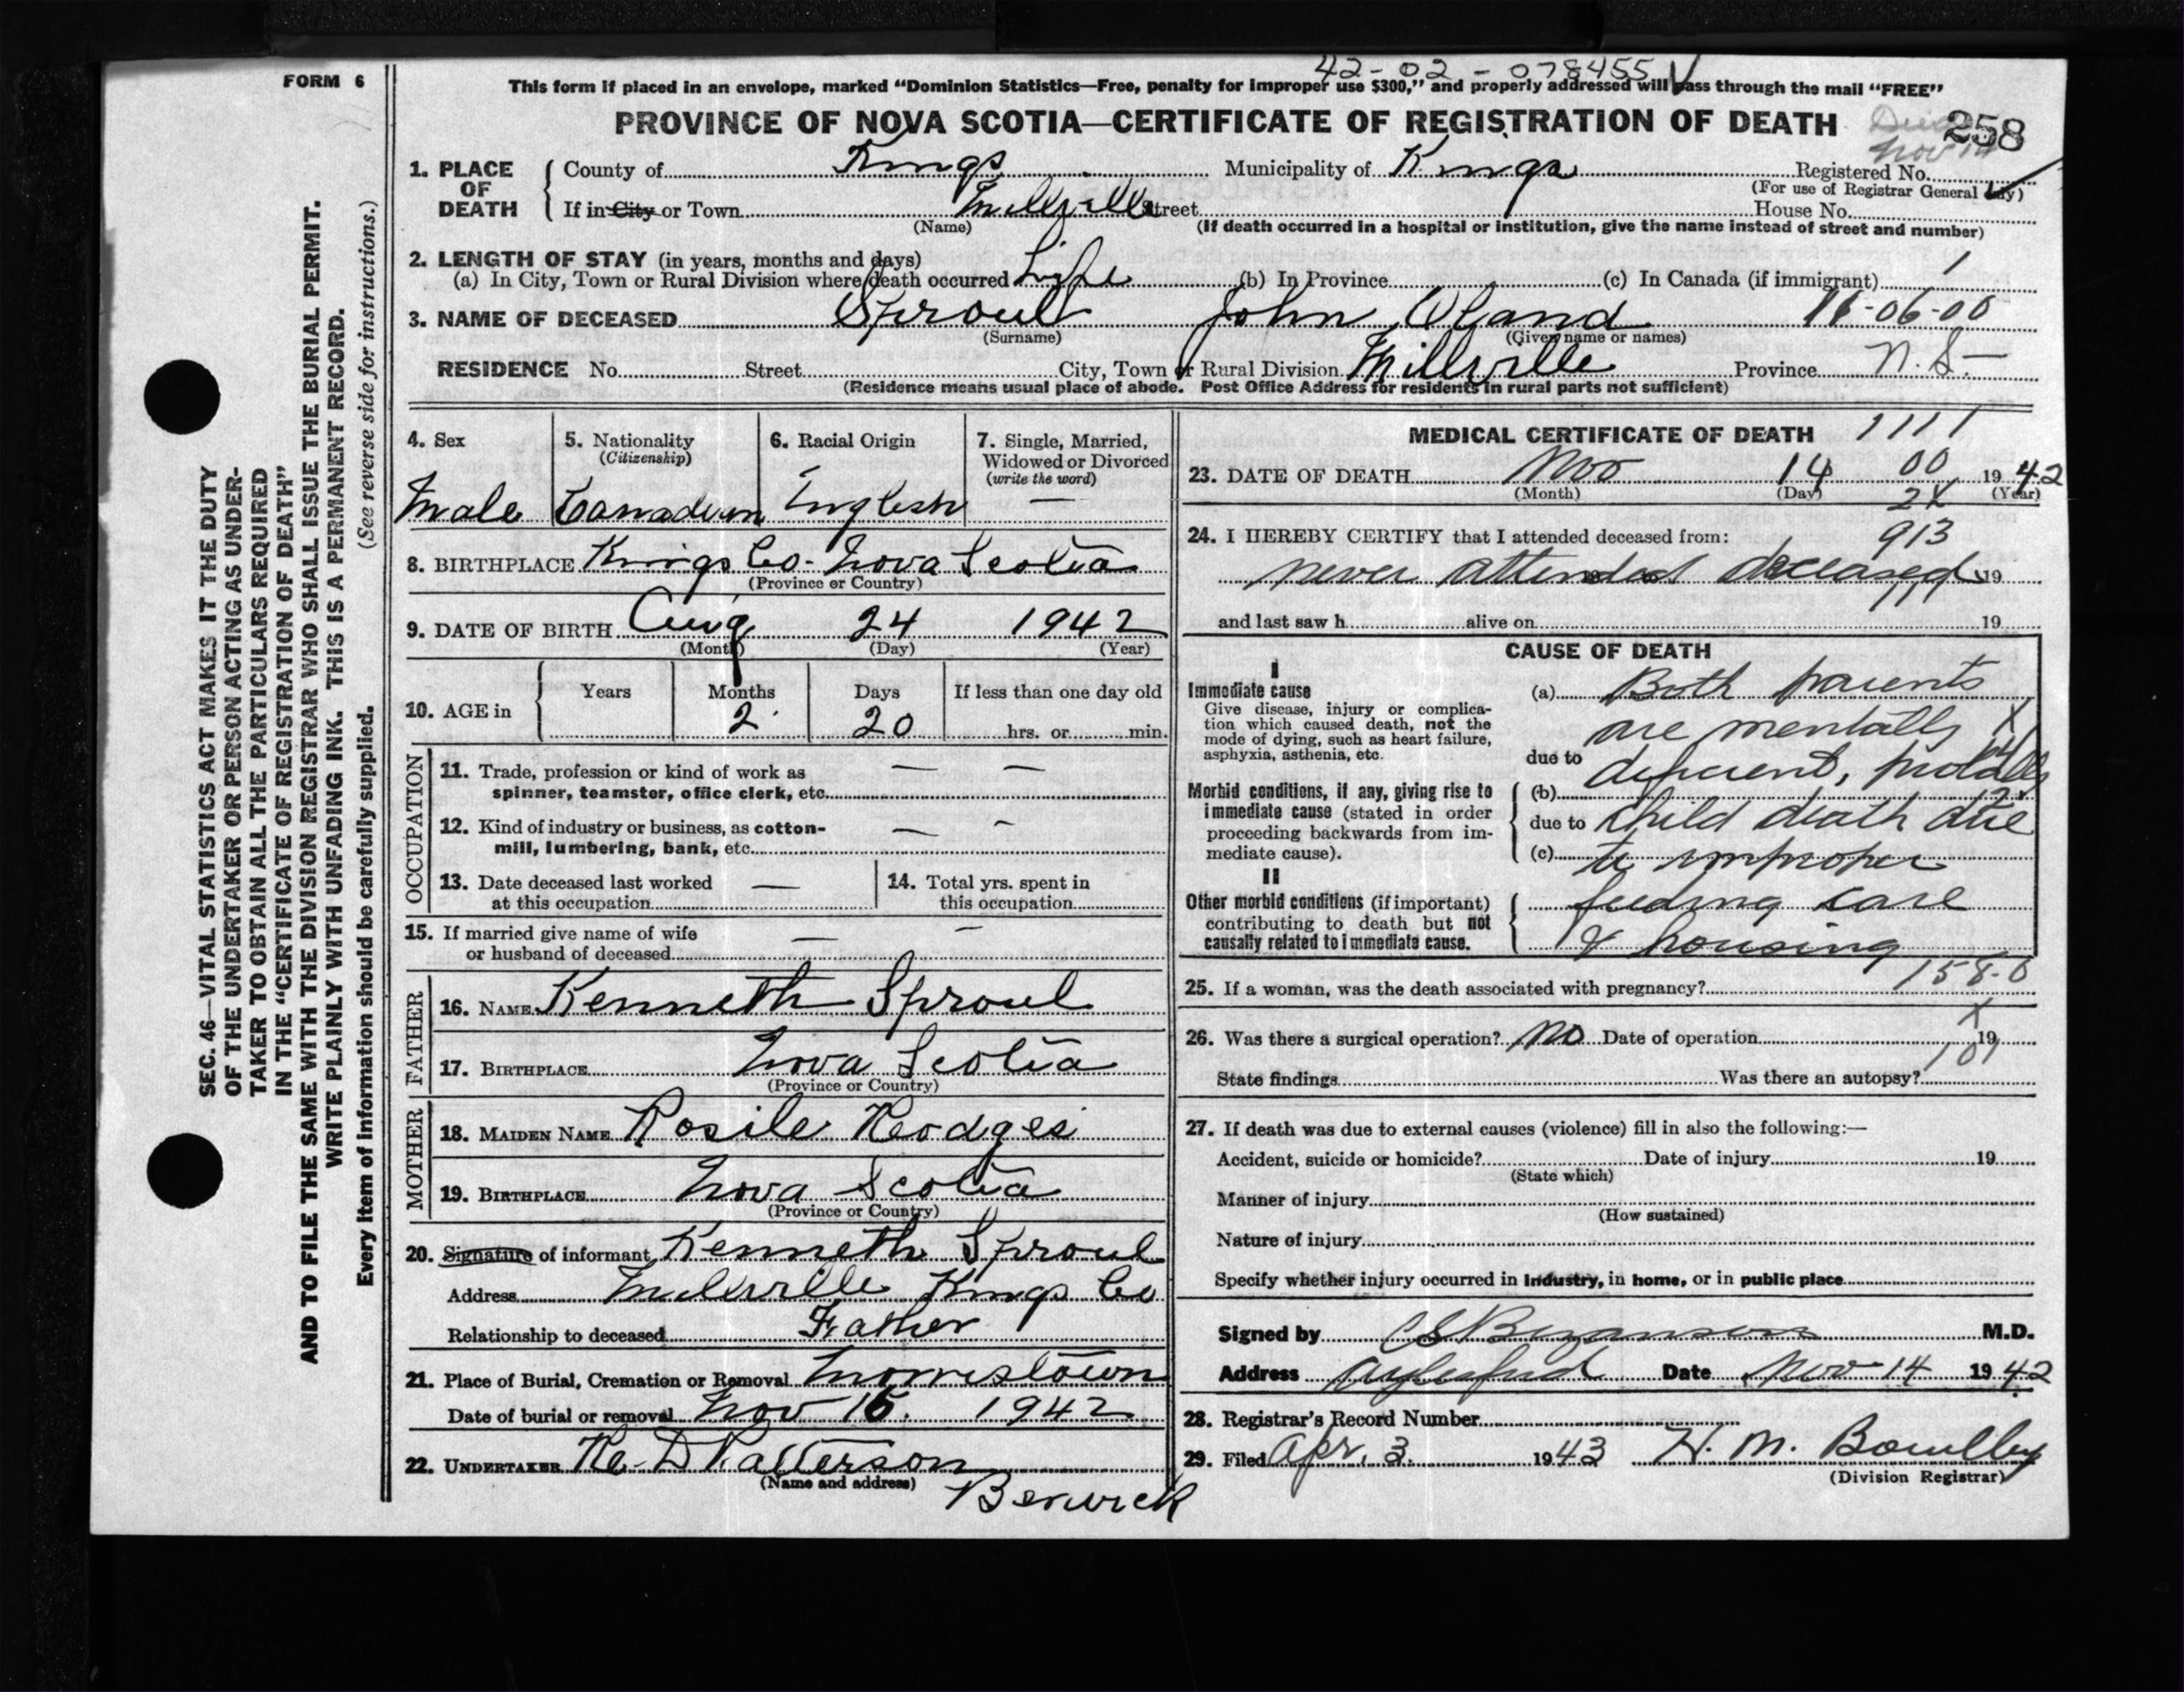 42-02-078455
FORM 6
This form if placed in an envelope, marked "Dominion Statistics—Free, penalty for improper use $300," and properly addressed will pass through the mail "FREE"
PROVINCE OF NOVA SCOTIA—CERTIFICATE OF REGISTRATION OF DEATH
258
Nov 14
1. PLACE OF DEATH
County of Kings Municipality of Kings Registered No.
(For use of Registrar General only)
If in City or Town Millville Street House No.
(Name) (If death occurred in a hospital or institution, give the name instead of street and number)
2. LENGTH OF STAY (in years, months and days)
(a) In City, Town or Rural Division where death occurred Life (b) In Province (c) In Canada (if immigrant) 1
3. NAME OF DECEASED Sproul John Oland 11-06-00
(Surname) (Given name or names)
RESIDENCE No. Street City, Town or Rural Division Millville Province N.S.
(Residence means usual place of abode. Post Office Address for residents in rural parts not sufficient)
4. Sex 5. Nationality (Citizenship) 6. Racial Origin 7. Single, Married, Widowed or Divorced (write the word)
Male Canadian English —
8. BIRTHPLACE Kings Co- Nova Scotia
(Province or Country)
9. DATE OF BIRTH Aug 24 1942
(Month) (Day) (Year)
10. AGE in Years Months Days If less than one day old
2 20 hrs. or min.
OCCUPATION
11. Trade, profession or kind of work as — —
spinner, teamster, office clerk, etc.
12. Kind of industry or business, as cotton- — -
mill, lumbering, bank, etc.
13. Date deceased last worked —
at this occupation
14. Total yrs. spent in
this occupation
15. If married give name of wife — -
or husband of deceased
FATHER
16. NAME Kenneth Sproul
17. BIRTHPLACE Nova Scotia
(Province or Country)
MOTHER
18. MAIDEN NAME Rosile Hodges
19. BIRTHPLACE Nova Scotia
(Province or Country)
20. Signature of informant Kenneth Sproul
Address Millville Kings Co
Relationship to deceased Father
21. Place of Burial, Cremation or Removal Morristown
Date of burial or removal Nov 15. 1942
22. UNDERTAKER D Patterson
(Name and address) Berwick
MEDICAL CERTIFICATE OF DEATH 1111
23. DATE OF DEATH Nov 14 00 1942
(Month) (Day) 24 (Year)
24. I HEREBY CERTIFY that I attended deceased from: 913
never attended deceased 19
111
and last saw h alive on 19
CAUSE OF DEATH
I
Immediate cause
Give disease, injury or complica-
tion which caused death, not the
mode of dying, such as heart failure,
asphyxia, asthenia, etc.
Morbid conditions, if any, giving rise to
immediate cause (stated in order
proceeding backwards from im-
mediate cause).
II
Other morbid conditions (if important)
contributing to death but not
causally related to immediate cause.
(a) Both parents
are mentally
due to deficient, probably
(b)
due to child death due
(c) to improper
feeding care
& housing
158-0
25. If a woman, was the death associated with pregnancy?
X
26. Was there a surgical operation? No Date of operation 19
101
State findings Was there an autopsy?
27. If death was due to external causes (violence) fill in also the following:—
Accident, suicide or homicide? Date of injury 19
(State which)
Manner of injury
(How sustained)
Nature of injury
Specify whether injury occurred in industry, in home, or in public place
Signed by C S Bezanson M.D.
Address Aylesford Date Nov 14 1942
28. Registrar's Record Number
29. Filed Apr. 3. 1943 H. M.
(Division Registrar)
SEC. 46—VITAL STATISTICS ACT MAKES IT THE DUTY
OF THE UNDERTAKER OR PERSON ACTING AS UNDER-
TAKER TO OBTAIN ALL THE PARTICULARS REQUIRED
IN THE "CERTIFICATE OF REGISTRATION OF DEATH"
AND TO FILE THE SAME WITH THE DIVISION REGISTRAR WHO SHALL ISSUE THE BURIAL PERMIT.
WRITE PLAINLY WITH UNFADING INK. THIS IS A PERMANENT RECORD.
Every item of information should be carefully supplied. (See reverse side for instructions.)